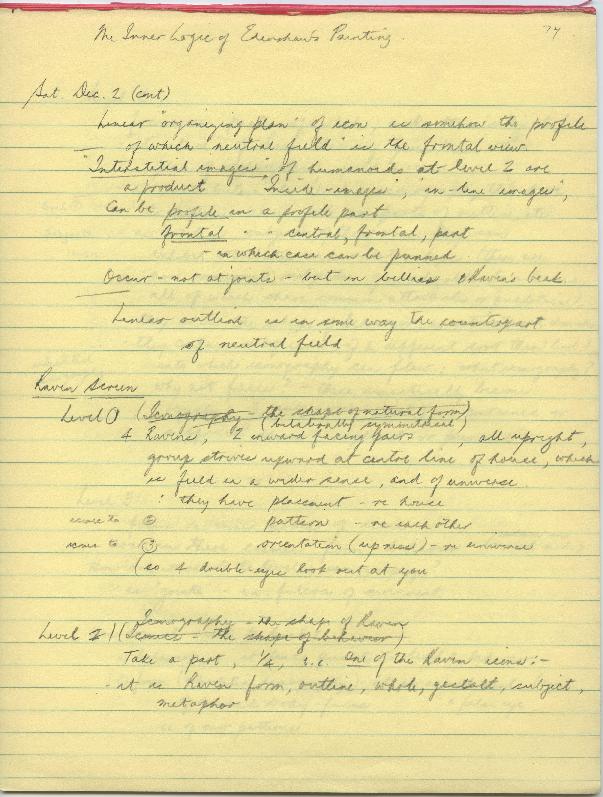 The Inner Logic of Edenshaw's Painting. 74
Sat. Dec. 2 (cont)
Linear "organizing plan" of icon is somehow the profile
of which "neutral field" is the frontal view.
"Interstetial images" of humanoids at level 2 are
a product "Inside-images", "in-line images",
Can be profile in a profile part
frontal " " central, frontal, part
- in which case can be punned
Occur - not at joints - but in bellies & Raven's beak
Linear outline is in some way the counterpart
of neutral field
Raven Screen
Level 0 (Iconography - the shape of natural form)
(bilaterally symmetrical)
4 Ravens, 2 inward facing pairs, all upright,
group strives upward at centre line of house, which
is field in a wider sense, and of universe.
: they have placement - re house
② pattern - re each other
③ orientation (upness) - re universe
(so 4 double-eyes look out at you
Iconography - the shape of Raven
Level 2 1 ( - the shape of behavior)
Take a part, 1/4, i.e. one of the Raven icons:-
- it is Raven form, outline, whole, gestalt, subject,
metaphor